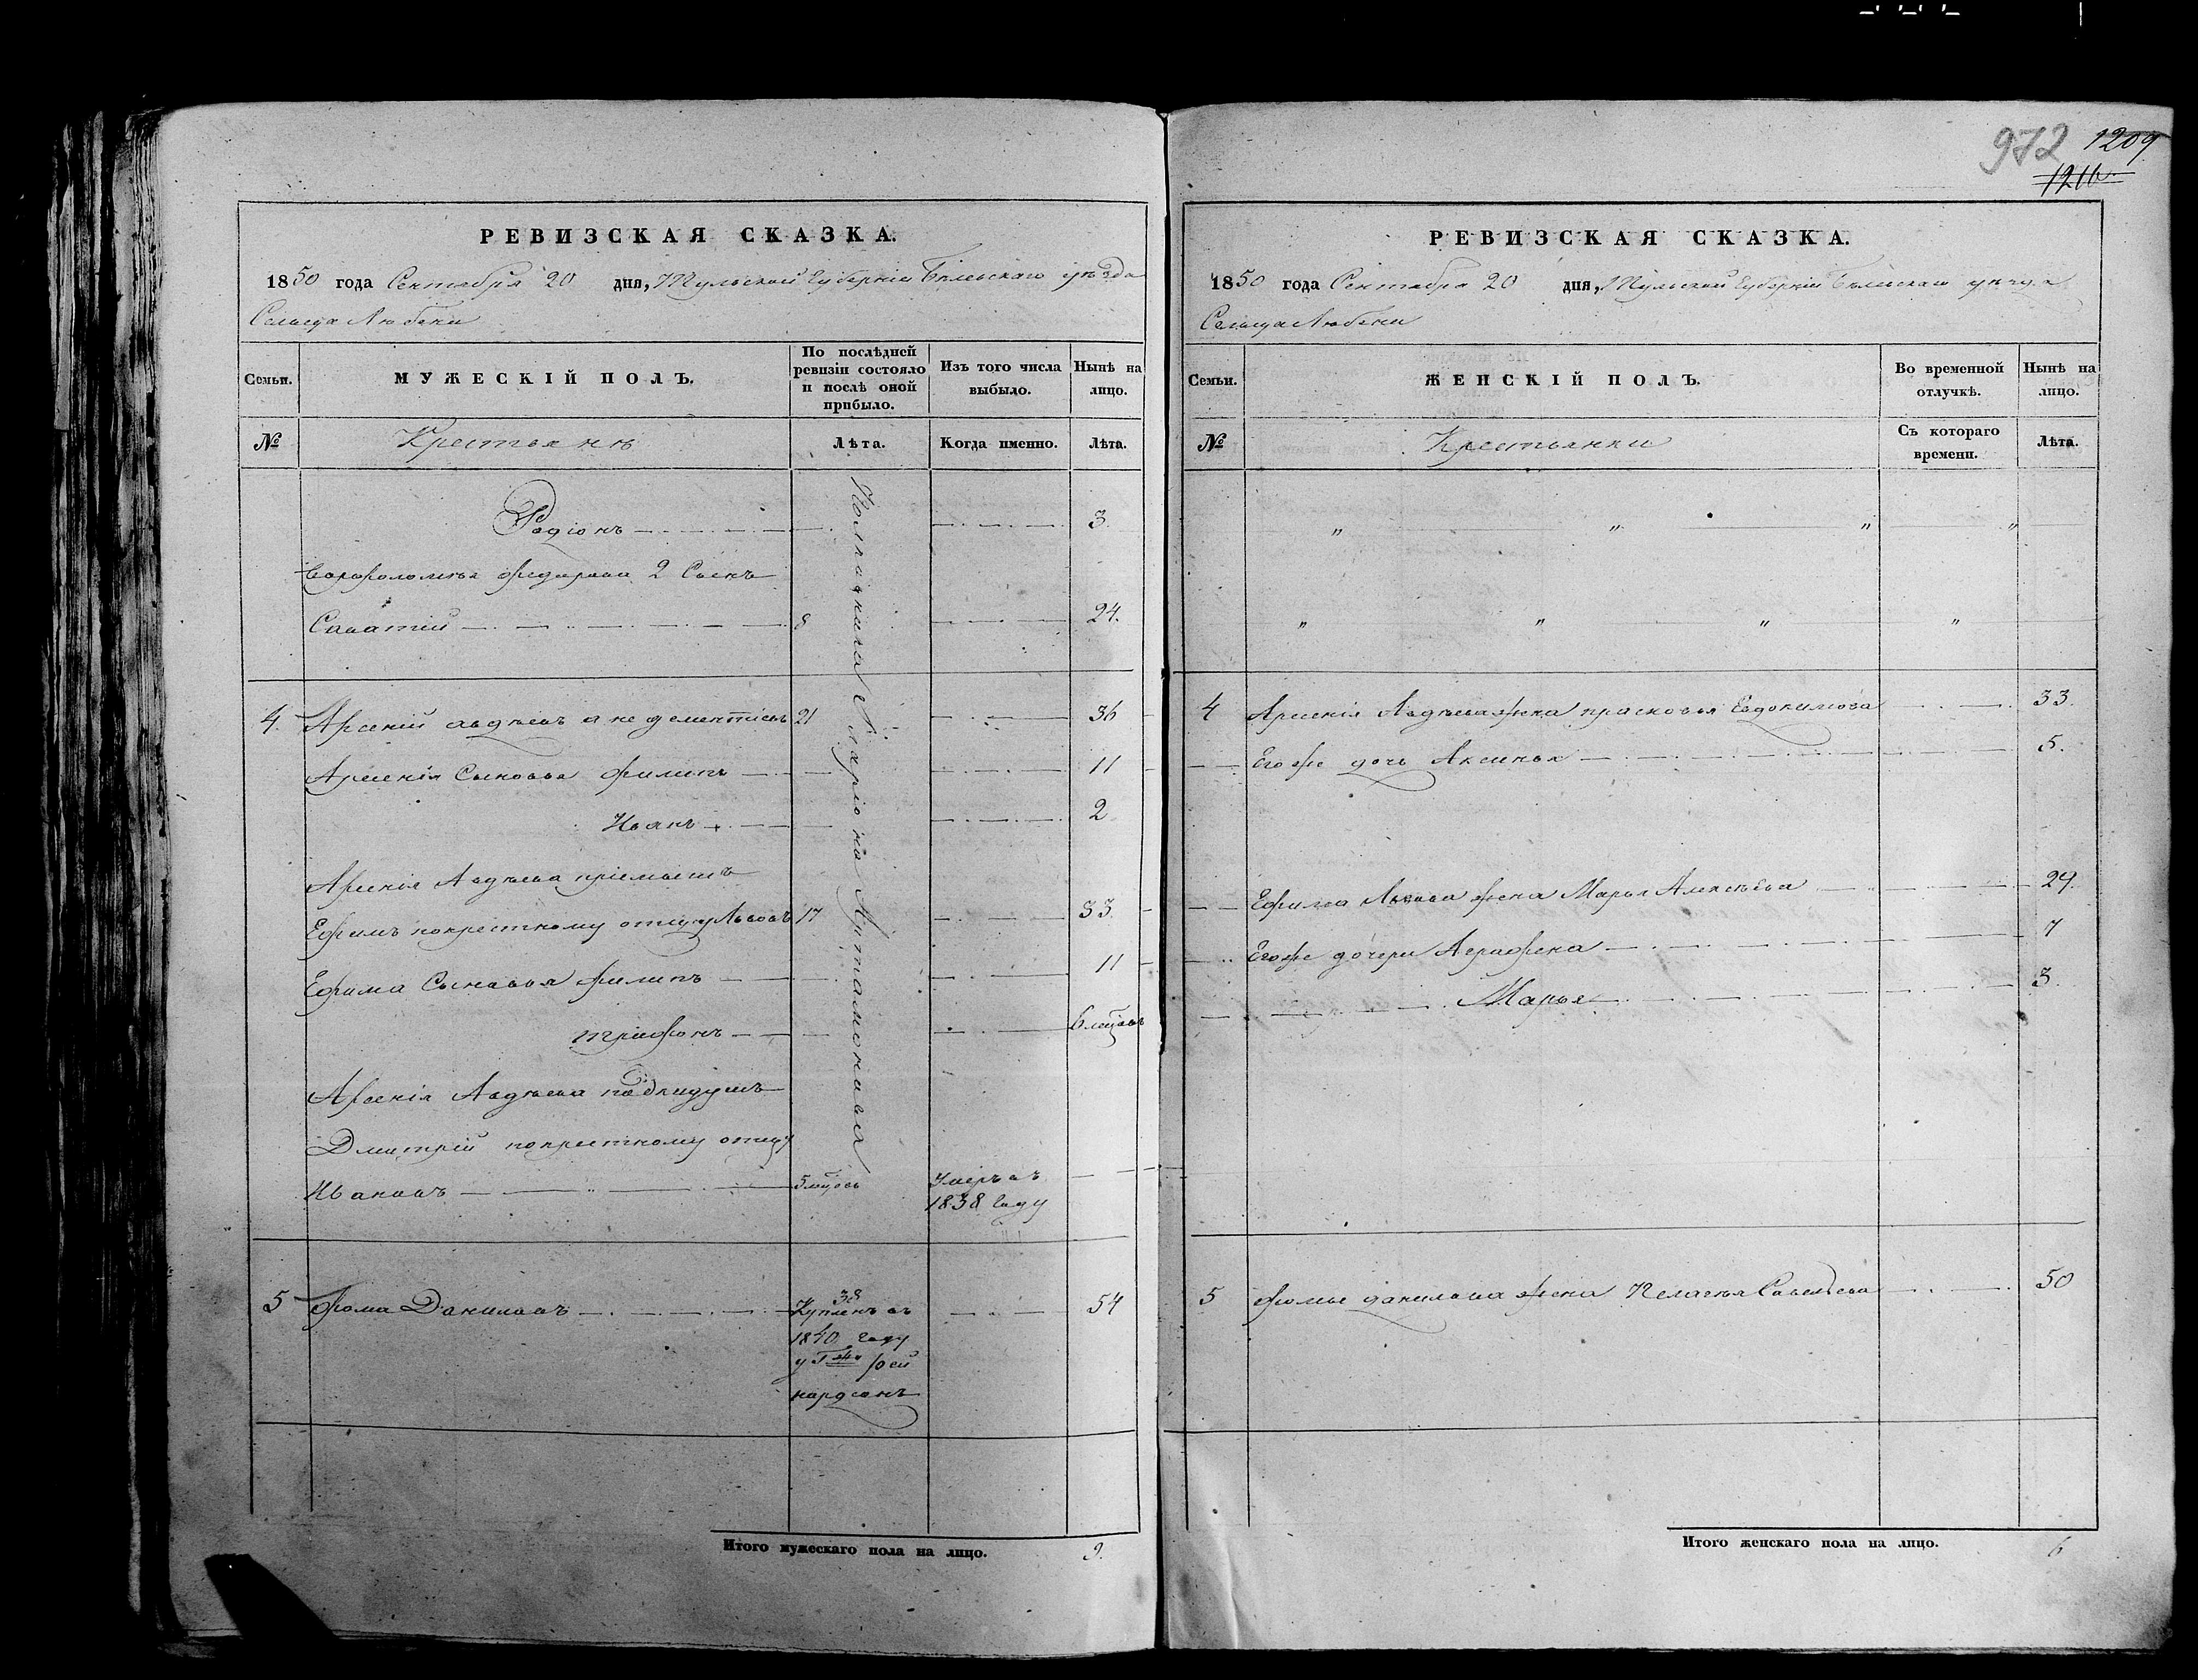 972 1209
1210
РЕВИЗСКАЯ СКАЗКА.
1850 года Сентября 20 дня, Тульской Губерніи Бѣлевскаго уѣзда
Сельца Любени
Семьи.
МУЖЕСКІЙ ПОЛЪ.
По послѣдней ревизіи состояло и послѣ оной прибыло.
Изъ того числа выбыло.
Нынѣ на лицо.
№
Крестьянѣ
Лѣта.
Когда именно.
Лѣта.
Родіонъ 3.
Варфоломѣя Федарова 2 Сынъ
Саватій 8 24.
4. Арсеній Авдѣевъ а не дементіевъ 21 36
Арсенія Сыновья Филипъ 11
Иванъ 2
Арсенія Авдѣева пріемышъ
Ефимъ покрестному отцу Львовъ 17 33.
Ефима Сыновья Филипъ 11
трифонъ
Арсенія Авдѣева подкидушъ
Дмитрій покрестному отцу
Ивановъ Умеръ въ
1838 году
5 Фома Даниловъ 38 54
Купленъ въ
1840 году
Итого мужескаго пола на лицо. 9.
РЕВИЗСКАЯ СКАЗКА.
1850 года Сентября 20 дня, Тульской Губерніи Бѣлевскаго уѣзда
Сельца Любени
Семьи.
ЖЕНСКІЙ ПОЛЪ.
Во временной отлучкѣ.
Нынѣ на лицо.
№
Крестьянки
Съ котораго времени.
Лѣта.
" " " "
" " " "
4 Арсенія Авдѣева жена прасковья Евдокимова 33.
Егоже дочь Аксинья 5.
Ефима Львова жена Марья Алексѣева 29.
Егоже дочери Аграфена 7
Марья 3.
5 Фомы данилова жена Пелагѣя Савельева 50
Итого женскаго пола на лицо. 6